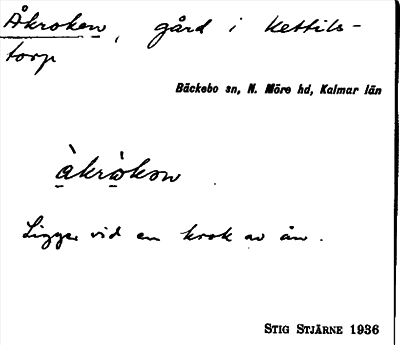 Åkroken, gård i Kettils-
torp
Bäckebo sn, N. Möre hd, Kalmar län
Ligger vid en krok av ån.
STIG STJÄRNE 1936